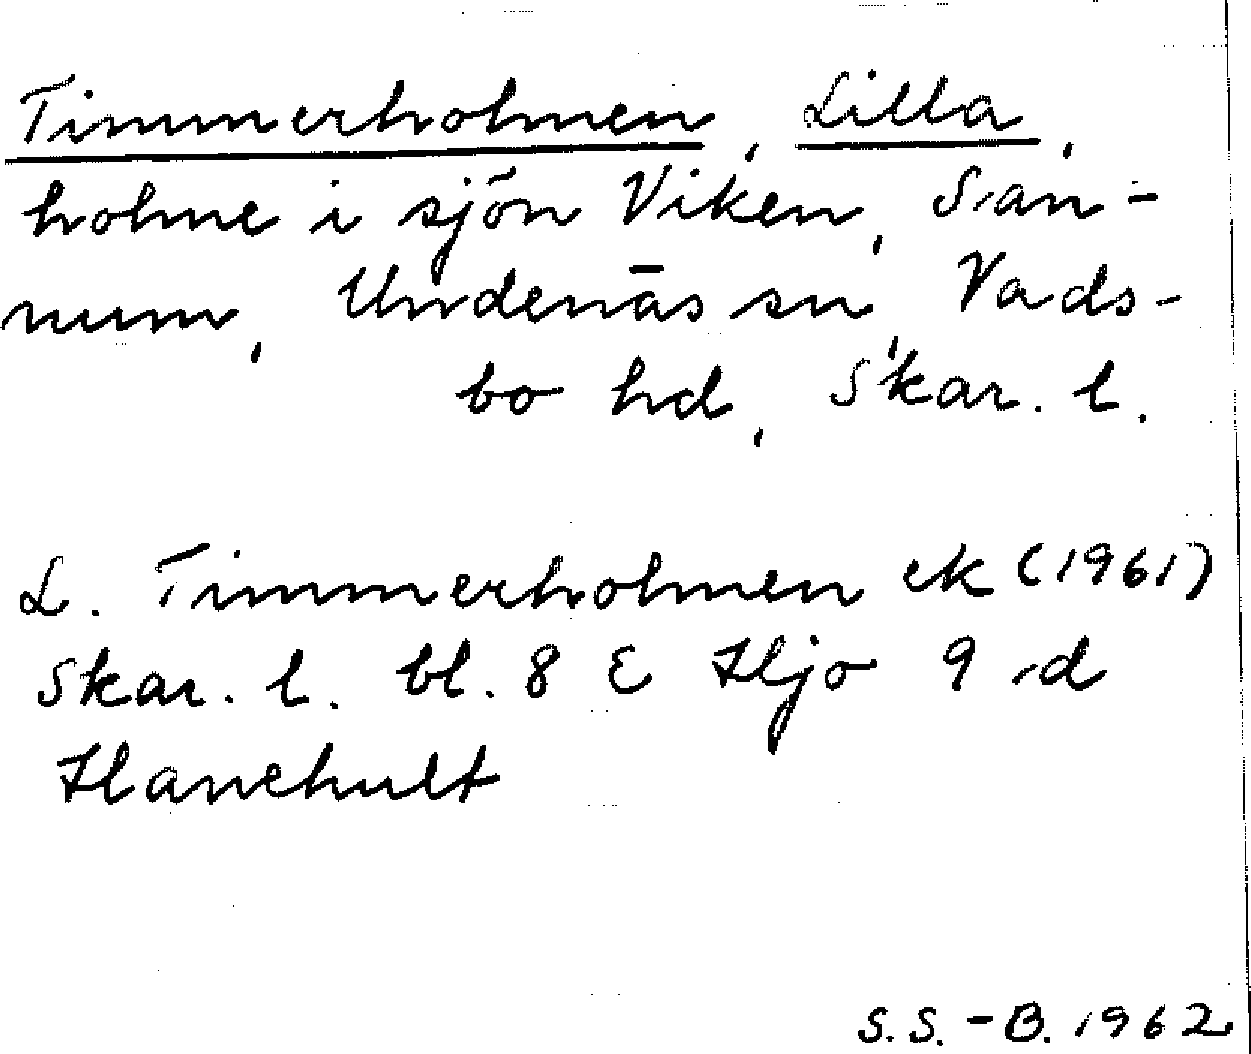 Timmerholmen, Lilla,
holme i sjön Viken, San-
num, Undenäs sn, Vads-
bo hd, Skar. l.
L. Timmerholmen ek (1961)
Skar. l. bl. 8 E Hjo 9 d
Hanehult
S. S. - B. 1962